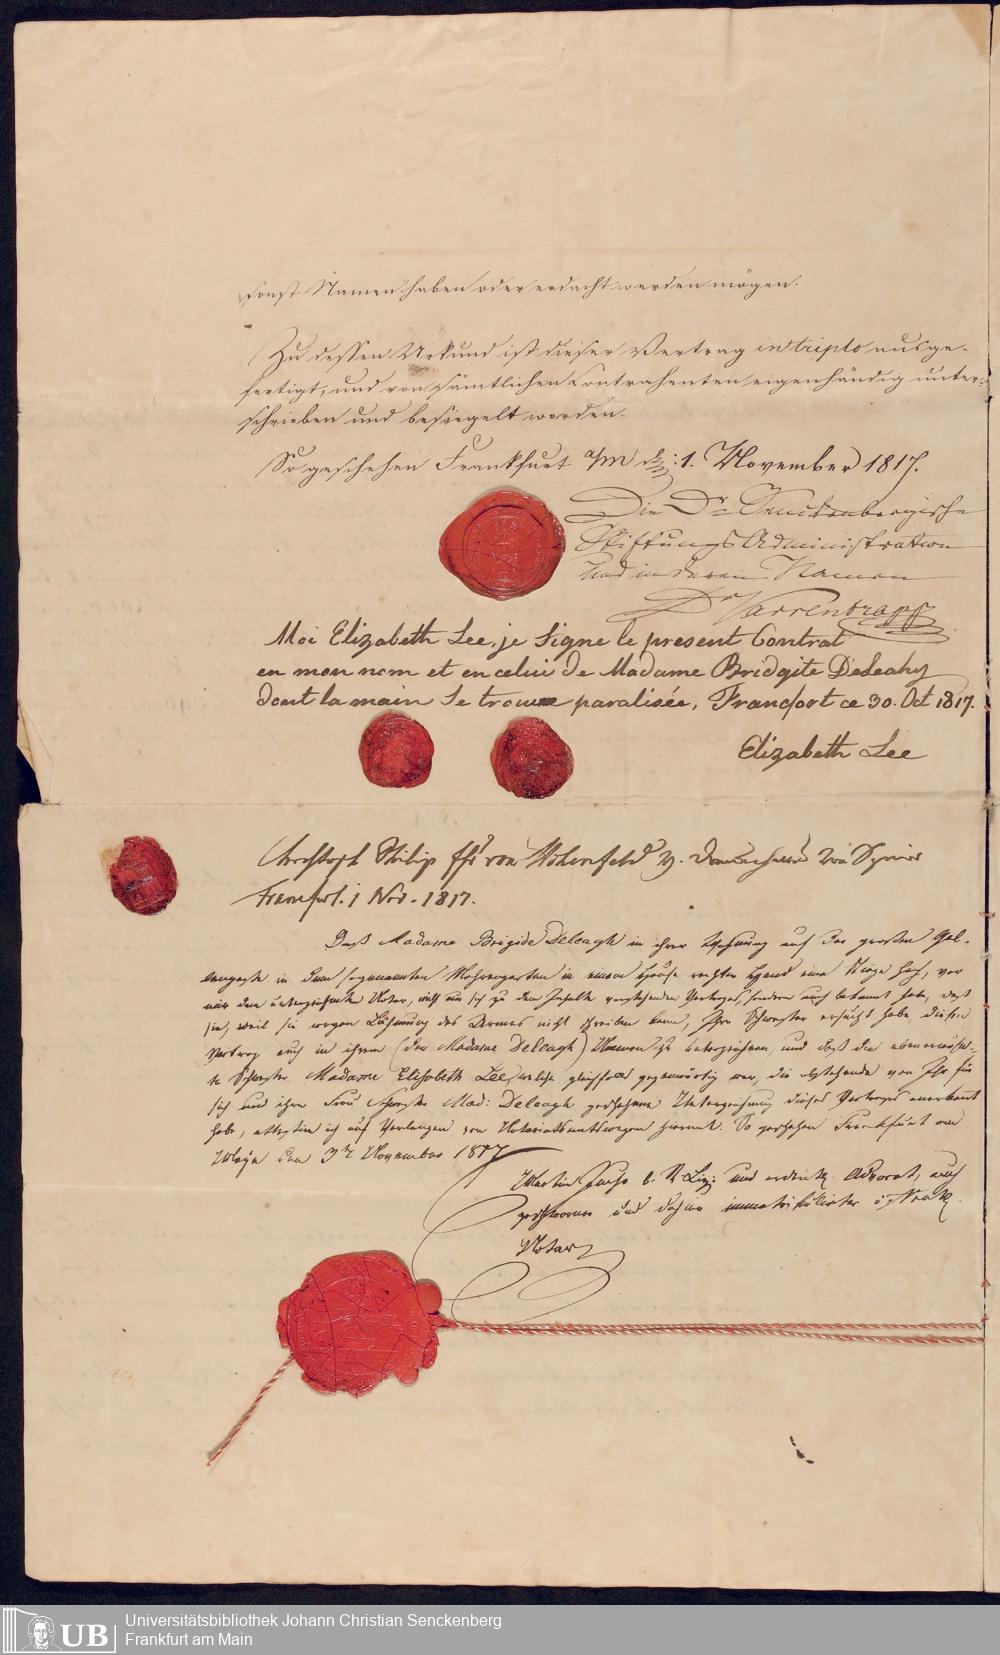 sonst Namen haben oder erdacht werden mögen.
Zu dessen Urkund ist dieser Vertrag in triplo ausge-
fertigt, und von sämtlichen Contrahenten eigenhändig unter-
schrieben und besiegelt worden.
So geschehen Frankfurt a/m d: 1. November 1817.
Die Dr. Senckenbergische
Stiftungs Administration
und in deren Namen
Dr Varrentrapp
Moi Elizabeth Lee, je Signe le present Contrat
en mon nom et en celui de Madame Bridgite DeLeahy
dont la main Se trouve paralisée, Francfort ce 30. Oct 1817.
Elizabeth Lee
Christoph Philip ffr von Hohenfeld
Francfurt. 1 Nov. 1817.
Daß Madame Brigide Deleagh in ihrer Wohnung auf der großen Gal-
lengasse in dem sogenannten Mohrengarten in einem Hause rechter Hand eine Stiege hoch, vor
mir dem unterzeichneten Notar, nicht nur sich zu dem Inhalte vorstehenden Vertrages, sondern auch bekannt habe, daß
sie, weil sie wegen Lähmung des Armes nicht schreiben kann, Ihre Schwester ersucht habe, diesen
Vertrag auch in ihrem (der Madame Deleagh) Namen zu unterzeichnen, und daß die ebenerwähn-
te Schwester Madame Elisabeth Lee, welche gleichfalls gegenwärtig war, die obstehende von Ihr für
sich und ihre Frau Schwester Mad: Deleagh geschehene Unterzeichnung dieses Vertrages anerkannt
habe, attestire ich auf Verlangen von Notariatsamtswegen hiermit. So geschehen Frankfurt am
Mayn den 3 November 1817
Martin b. R. Liz: und ordentl. Advocat, auch
geschworner und dahier immatrikulirter
Notar
UB
Universitätsbibliothek Johann Christian Senckenberg
Frankfurt am Main